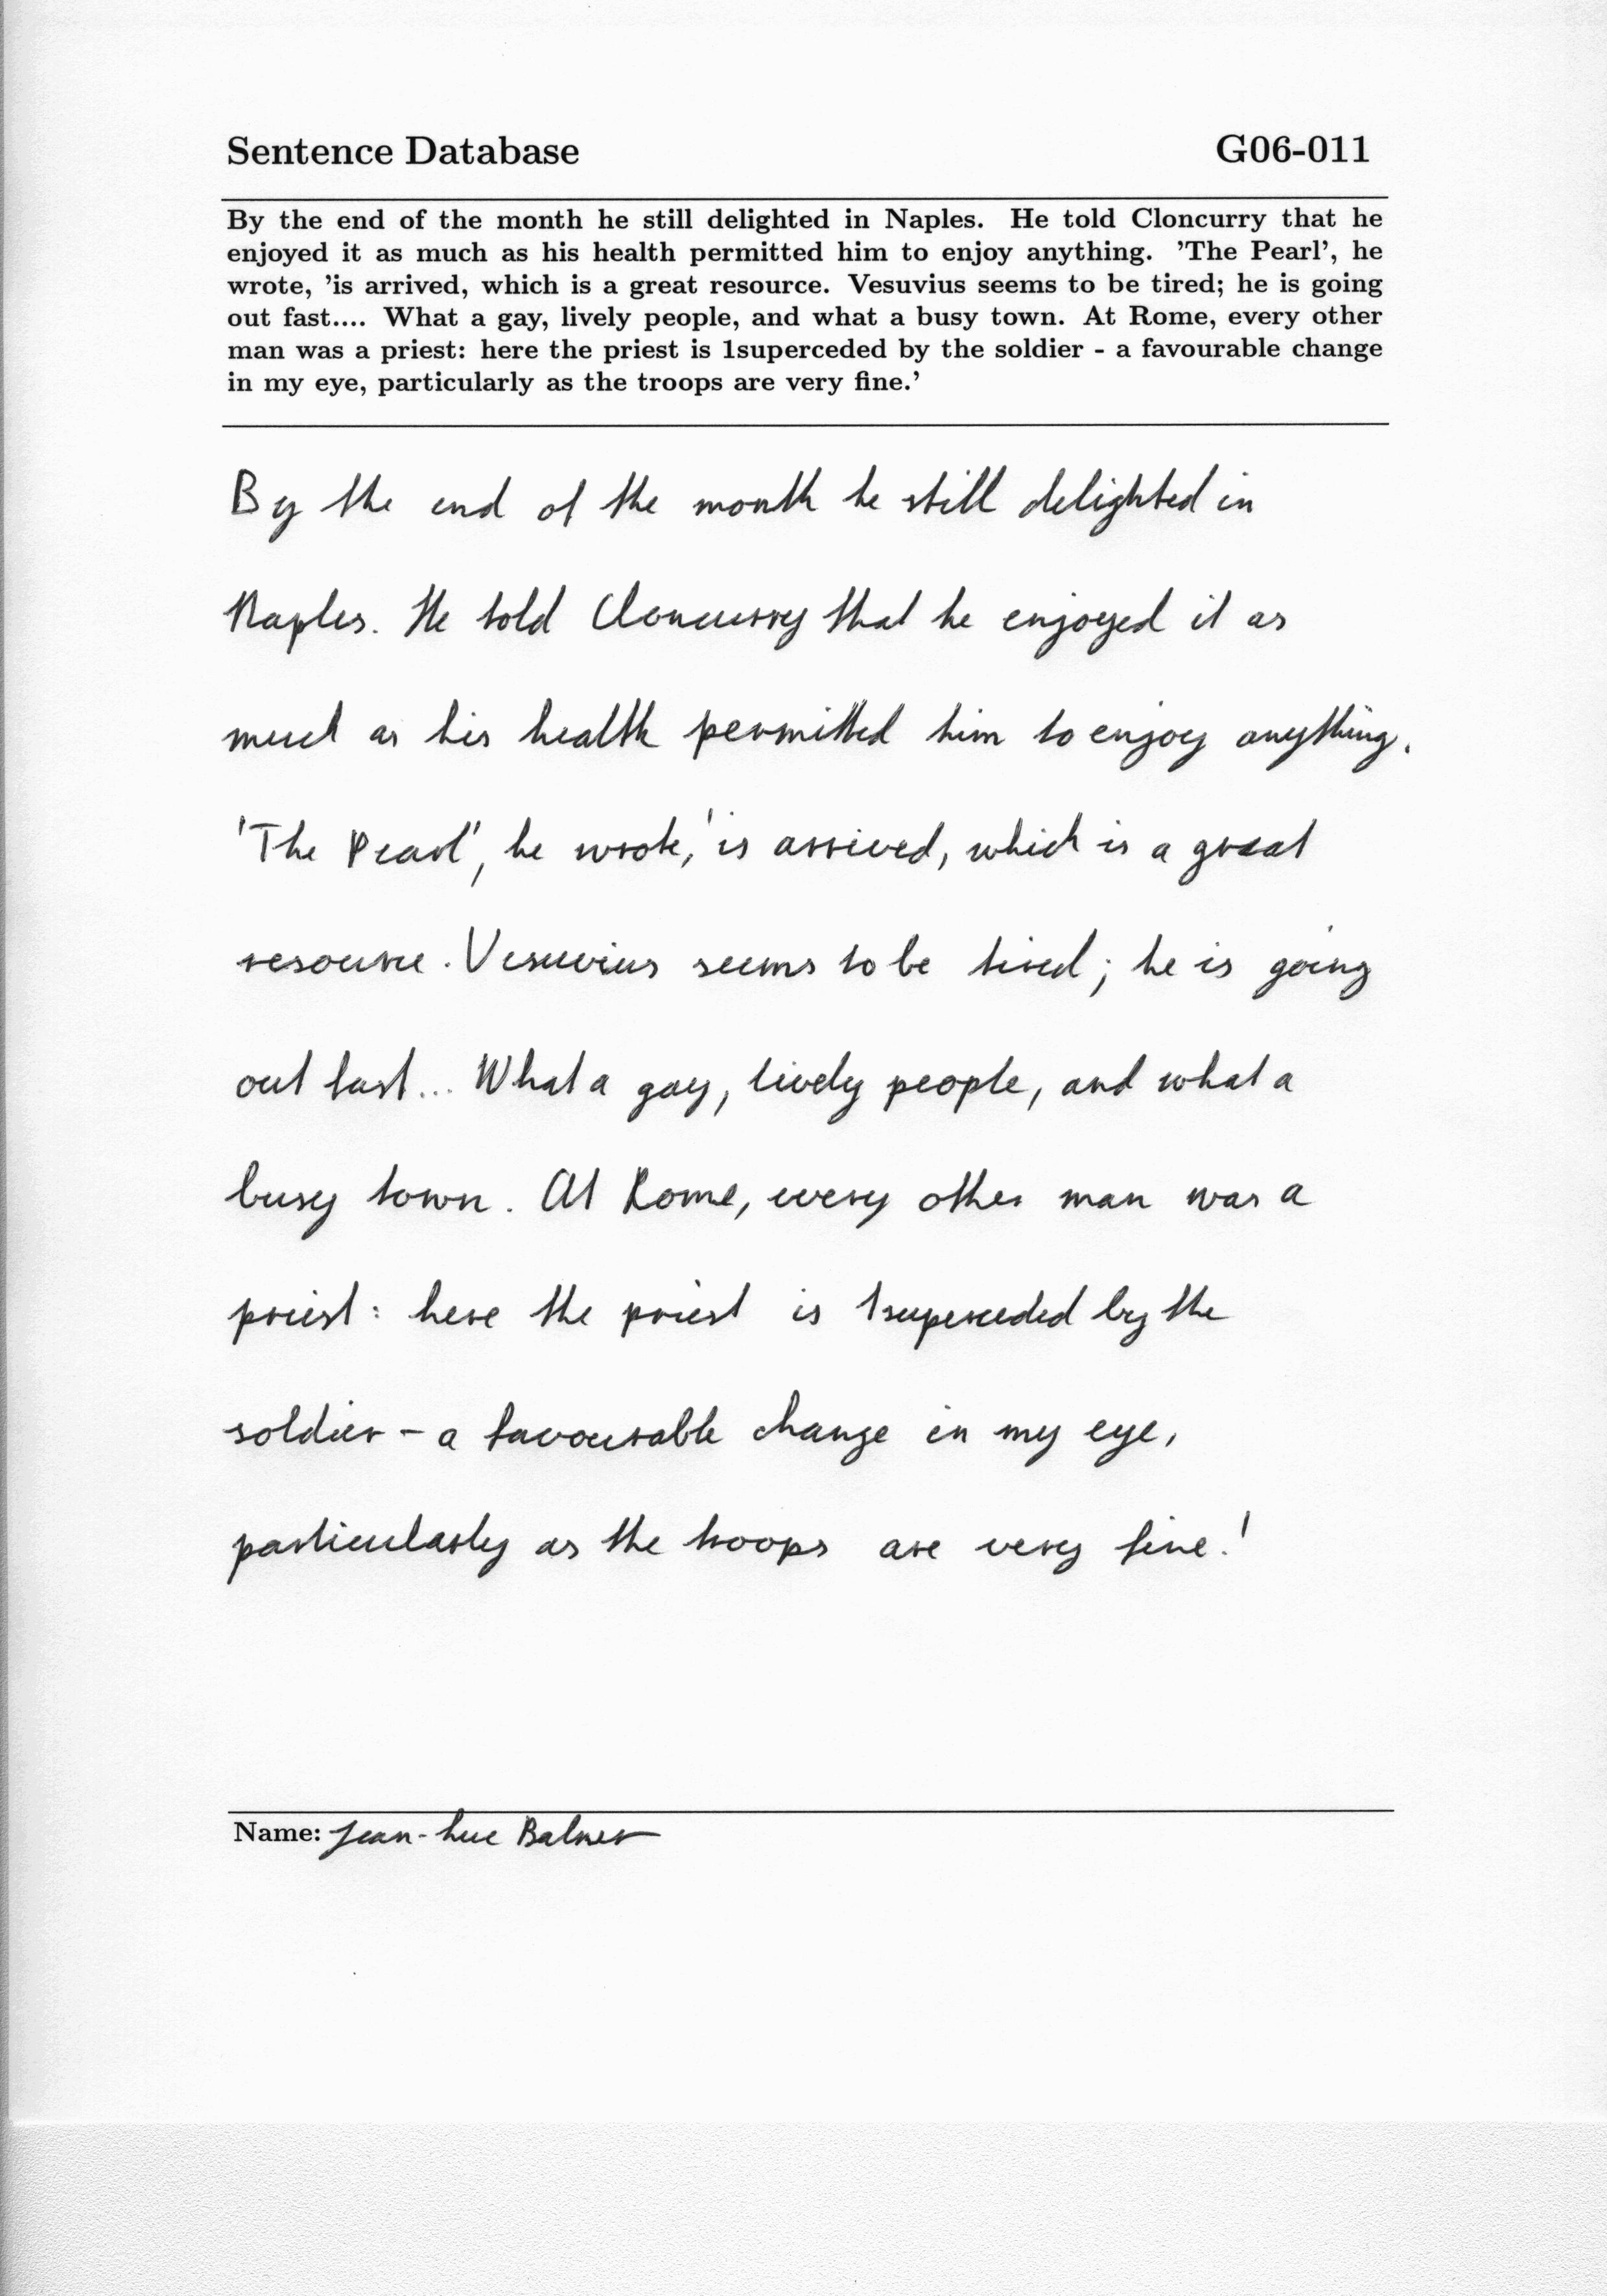 Sentence Database G06-011
By the end of the month he still delighted in Naples. He told Cloncurry that he
enjoyed it as much as his health permitted him to enjoy anything. 'The Pearl', he
wrote, 'is arrived, which is a great resource. Vesuvius seems to be tired; he is going
out fast.... What a gay, lively people, and what a busy town. At Rome, every other
man was a priest: here the priest is 1superceded by the soldier - a favourable change
in my eye, particularly as the troops are very fine.'
By the end of the month he still delighted in
Naples. He told Cloncurry that he enjoyed it as
much as his health permitted him to enjoy anything.
'The Pearl', he wrote, 'is arrived, which is a great
resource. Vesuvius seems to be tired; he is going
out fast... What a gay, lively people, and what a
busy town. At Rome, every other man was a
priest: here the priest is 1superceded by the
soldier - a favourable change in my eye,
particularly as the troops are very fine.'
Name: Jean-Luc